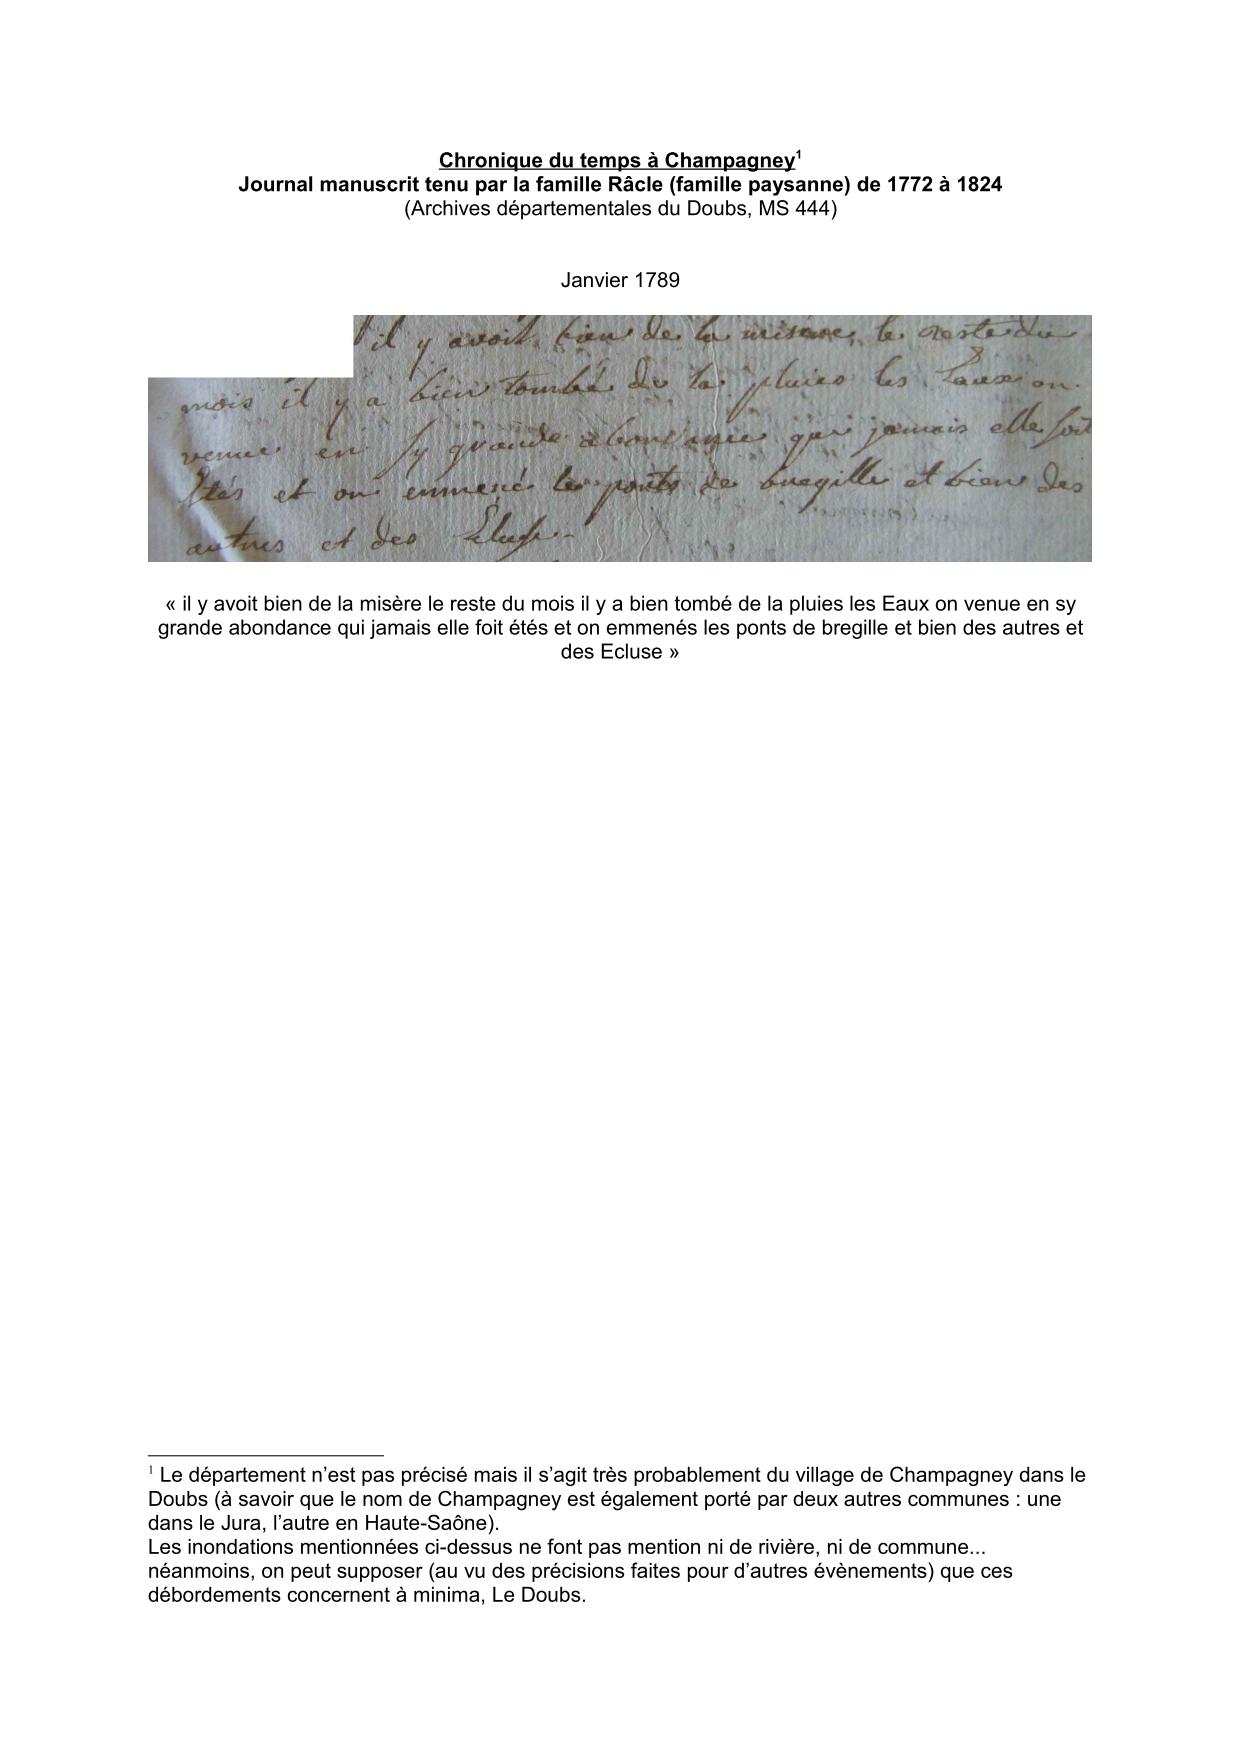 Chronique du temps à Champagney1
Journal manuscrit tenu par la famille Râcle (famille paysanne) de 1772 à 1824
(Archives départementales du Doubs, MS 444)
Janvier 1789
il y avoit bien de la misere le reste du
mois il y a bien tombé de la pluies les Eaux on
venue en sy grande abondance qui jamais elle soit
étés et on emmené les ponts de bregille et bien des
autres et des Ecluse
« il y avoit bien de la misère le reste du mois il y a bien tombé de la pluies les Eaux on venue en sy
grande abondance qui jamais elle foit étés et on emmenés les ponts de bregille et bien des autres et
des Ecluse »
1 Le département n’est pas précisé mais il s’agit très probablement du village de Champagney dans le
Doubs (à savoir que le nom de Champagney est également porté par deux autres communes : une
dans le Jura, l’autre en Haute-Saône).
Les inondations mentionnées ci-dessus ne font pas mention ni de rivière, ni de commune...
néanmoins, on peut supposer (au vu des précisions faites pour d’autres évènements) que ces
débordements concernent à minima, Le Doubs.